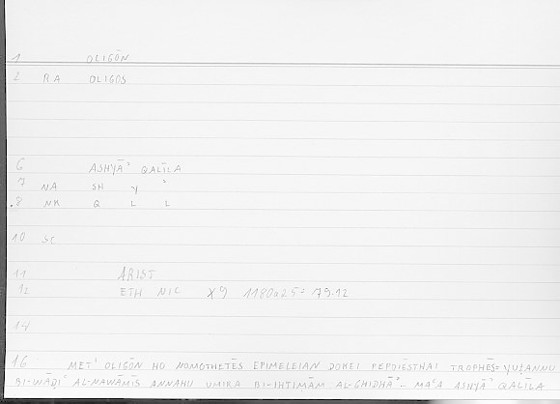 1 OLIGŌN
2 RA OLIGOS
6 ASHYĀʾ QALĪLA
7 NA SH Y ʾ
8 NK Q L L
10 SC
11 ARIST
12 ETH NIC X9 1180a25 = 79.12
14
16 METʾ OLIGŌN HO NOMOTHETĒS EPIMELEIAN DOKEI PEPOIĒSTHAI TROPHĒS = YUẒANNU
BI-WĀḌIʿ AL-NAWĀMĪS ANNAHU UMIRA BI-IHTIMĀM AL-GHIDHĀʾ - MAʿA ASHYĀʾ QALĪLA